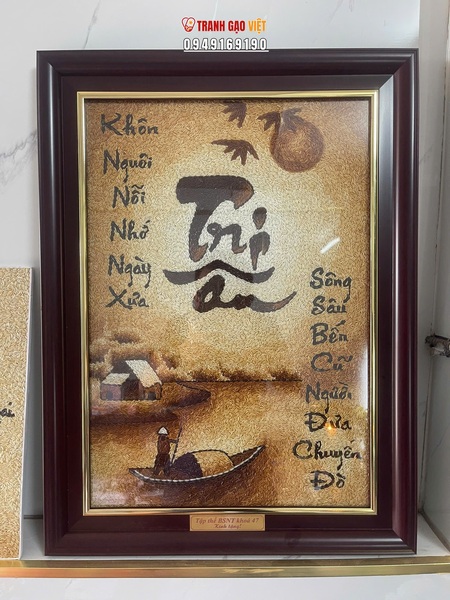 TRANH GẠO VIỆT
0949169190
Khôn
Người
Nỗi
Nhớ
Ngày
Xưa
Tri
Ân
Sông
Sâu
Bến
Cũ
Người
Đưa
Chuyến
Đò
Tập thể BSNT khoá 47
Kính tặng!